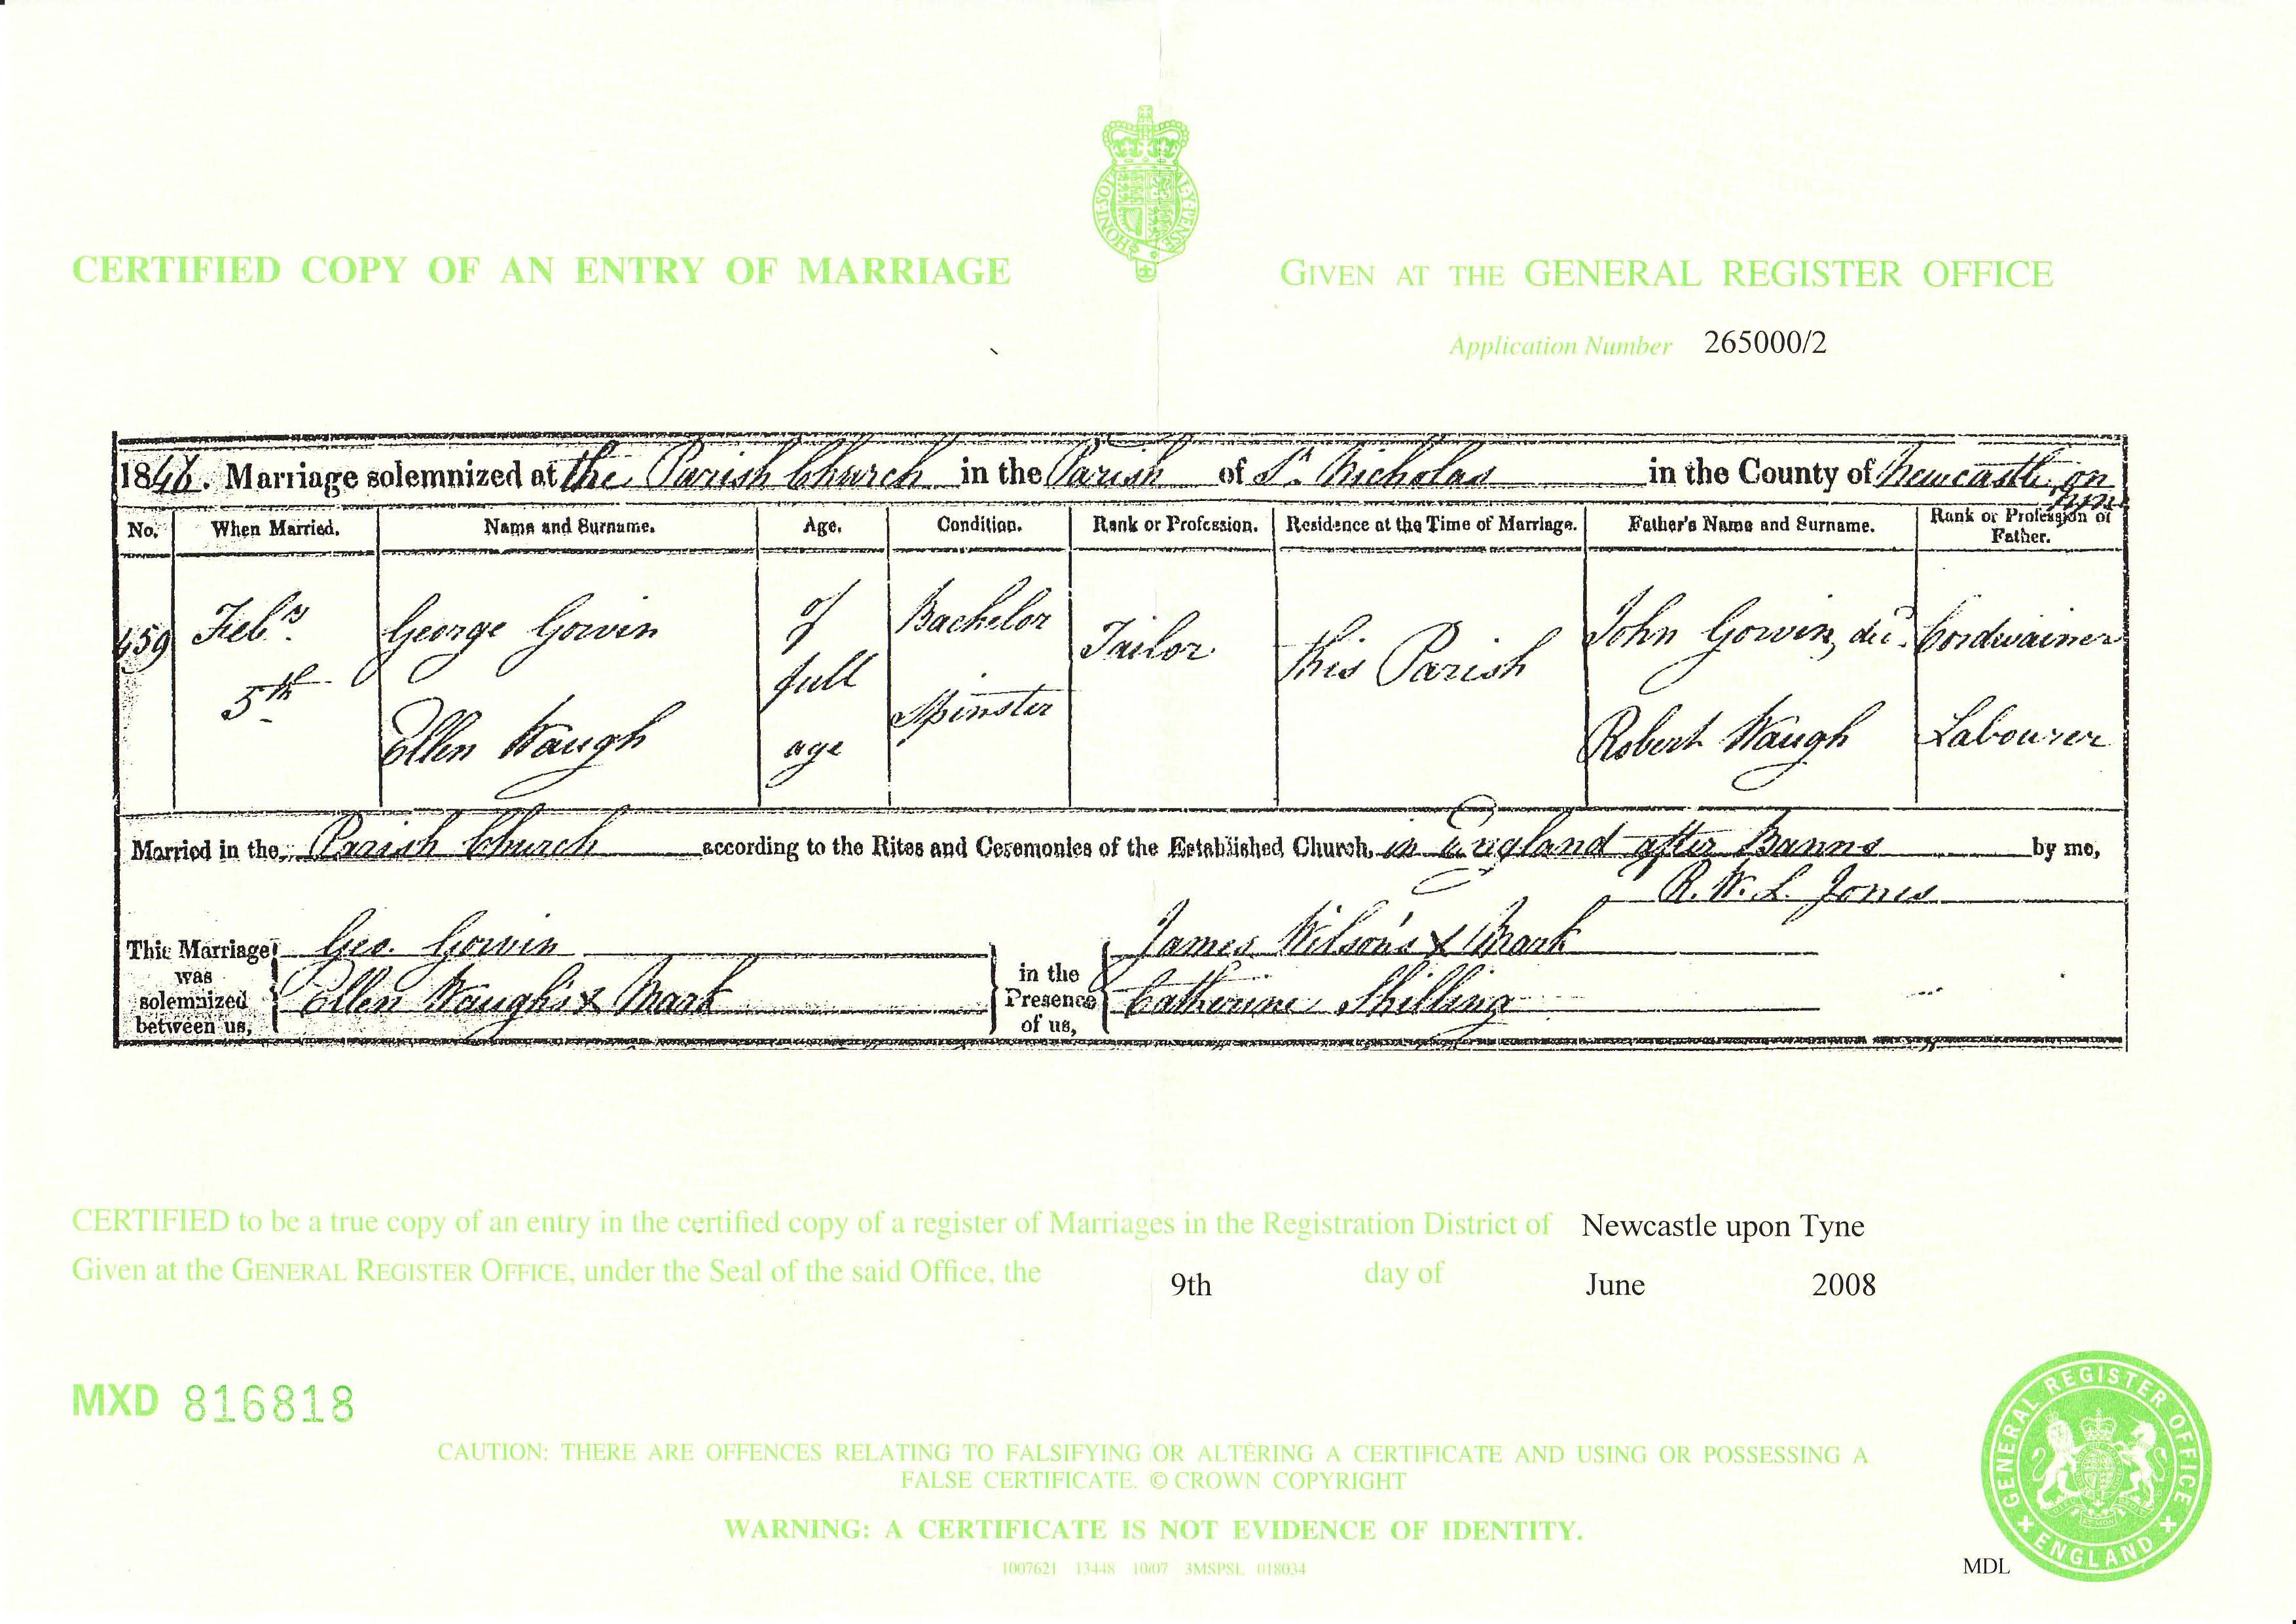 HONI·SOI AL·Y·PENSE
CERTIFIED COPY OF AN ENTRY OF MARRIAGE
GIVEN AT THE GENERAL REGISTER OFFICE
Application Number 265000/2
1846. Marriage solemnized at the Parish Church in the Parish of St. Nicholas in the County of Newcastle on Tyne
No. When Married. Name and Surname. Age. Condition. Rank or Profession. Residence at the Time of Marriage. Father's Name and Surname. Rank or Profession of Father.
459 Feby. 5th George Gowin of full age Bachelor Tailor This Parish John Gowin, decd. Cordwainer
Ellen Waugh Spinster Robert Waugh Labourer
Married in the Parish Church according to the Rites and Ceremonies of the Established Church, in England after Banns by me,
R. W. L. Jones
This Marriage was solemnized between us, Geo. Gowin
Ellen Waugh's X Mark
in the Presence of us, James Wilson's X Mark
Catherine Shilling
CERTIFIED to be a true copy of an entry in the certified copy of a register of Marriages in the Registration District of Newcastle upon Tyne
Given at the GENERAL REGISTER OFFICE, under the Seal of the said Office, the 9th day of June 2008
MXD 816818
CAUTION: THERE ARE OFFENCES RELATING TO FALSIFYING OR ALTERING A CERTIFICATE AND USING OR POSSESSING A
FALSE CERTIFICATE. © CROWN COPYRIGHT
WARNING: A CERTIFICATE IS NOT EVIDENCE OF IDENTITY.
1007621 13448 10/07 3MSPSL 018034
GENERAL REGISTER OFFICE
ENGLAND
MDL